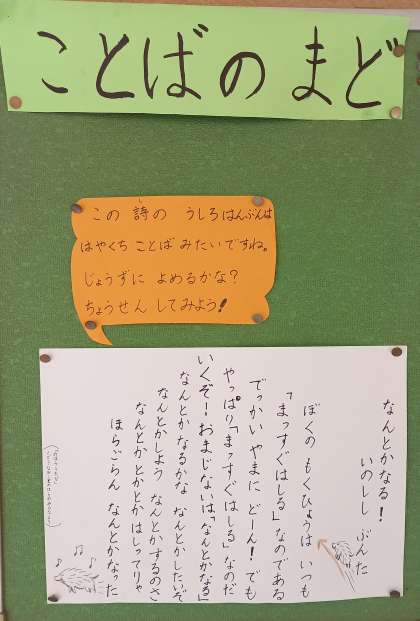 ことばのまど
この 詩の うしろはんぶんは
はやくち ことば みたいですね。
じょうずに よめるかな?
ちょうせん してみよう!
なんとかなる!
いのしし ぶんた
ぼくの もくひょうは いつも
「まっすぐはしる」なのである
でっかい やまに どーん! でも
やっぱり「まっすぐはしる」なのだ
いくぞ! おまじないは「なんとかなる」
なんとか なるかな なんとかしたいぞ
なんとかしよう なんとかするのさ
なんとか とかとか はしってりゃ
ほらごらん なんとかなった